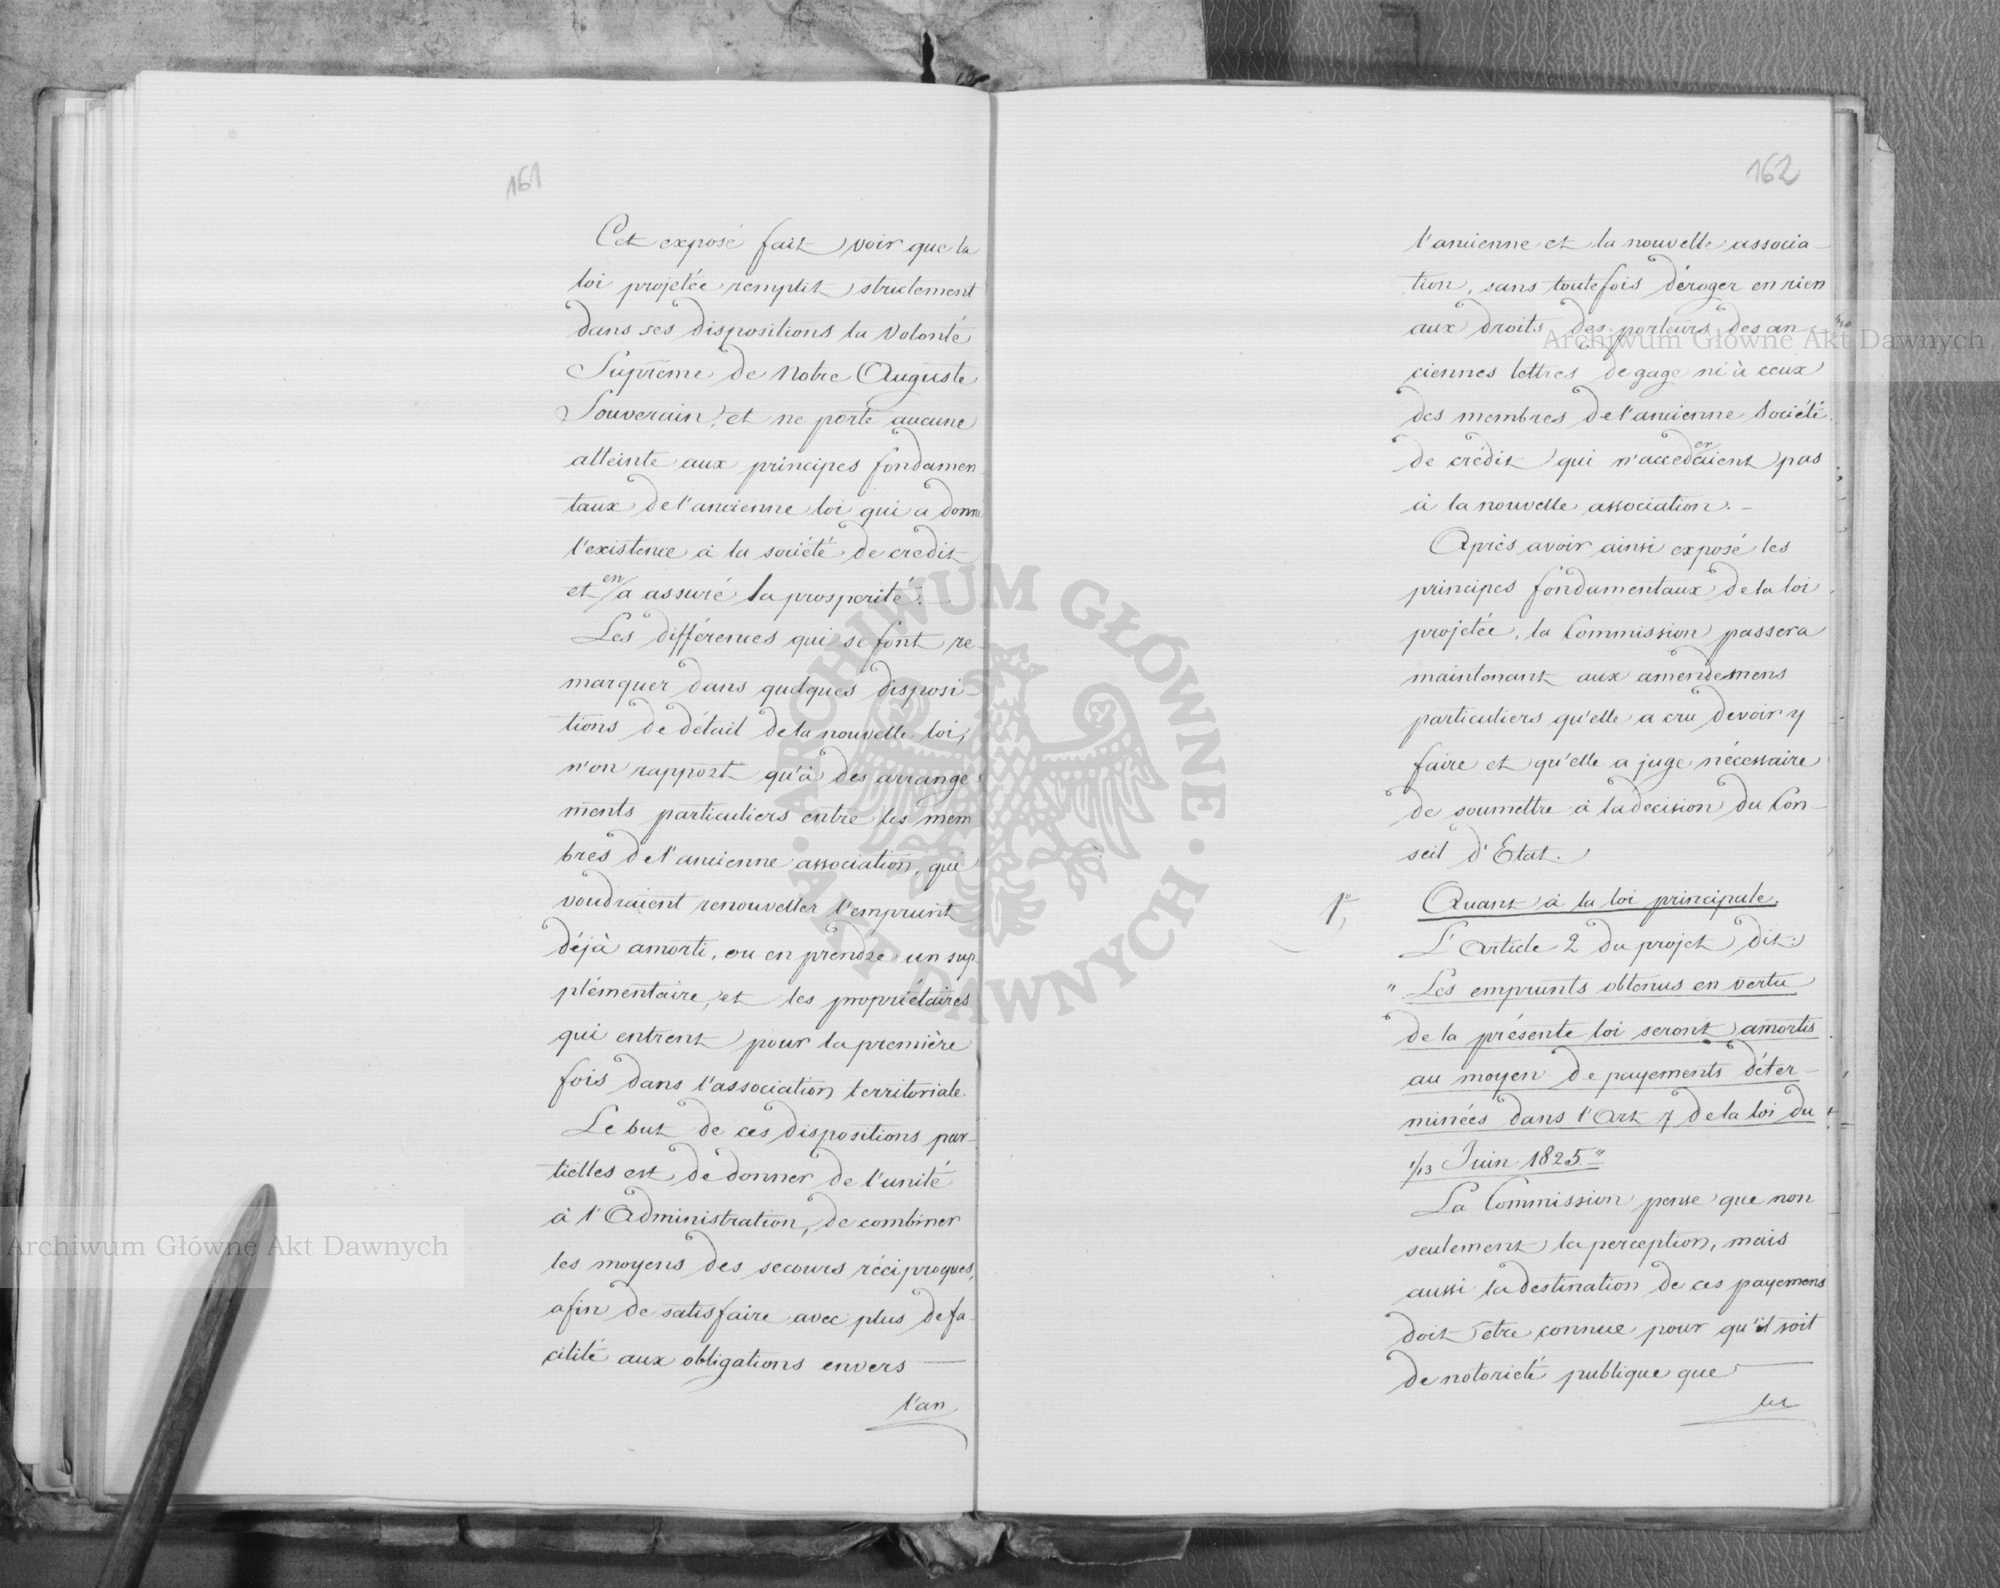 161
Cet exposé fait voir que la
loi projetée remplit strictement
dans ses dispositions la Volonté
Suprême de Notre Auguste
Souverain, et ne porte aucune
atteinte aux principes fondamen
taux de l'ancienne loi qui a donné
l'existence à la société de crédit
et en a assuré la prosperité. –
Les différences qui se font re-
marquer dans quelques disposi-
tions de détail de la nouvelle loi,
n'on rapport qu'à des arrange
ments particuliers entre les mem
bres de l'ancienne association, qui
voudraient renouveller l'emprunt
déjà amorti, ou en prendre un sup
plémentaire, et les propriétaires
qui entrent pour la première
fois dans l'association territoriale.
Le but de ces dispositions par-
tielles est de donner de l'unité
à l'Administration, de combiner
les moyens des secours réciproques,
afin de satisfaire avec plus de fa-
cilité aux obligations envers —
l'an
162
l'ancienne et la nouvelle associa-
tion, sans toutefois déroger en rien
aux droits des porteurs des an-
ciennes lettres de gage ni à ceux
des membres de l'ancienne Société
de crédit qui n'accederaient pas
à la nouvelle association. –
Après avoir ainsi exposé les
principes fondamentaux de la loi
projetée, la Commission passera
maintenant aux amendemens
particuliers qu'elle a cru devoir y
faire et qu'elle a jugé nécessaire
de soumettre à la decision du Con-
seil d'Etat.
1º, Quant à la loi principale.
L'Article 2 du projet dit:
" Les emprunts obtenus en vertu
de la présente loi seront amortis
au moyen de payements déter-
minées dans l'Art 7 de la loi du
1/13 Juin 1825."
La Commission pense que non
seulement la perception, mais
aussi la destination de ces payemens
doit être connue pour qu'il soit
de notorieté publique que —
les
Archiwum Główne Akt Dawnych
Archiwum Główne Akt Dawnych
ARCHIWUM GŁÓWNE · AKT DAWNYCH ·